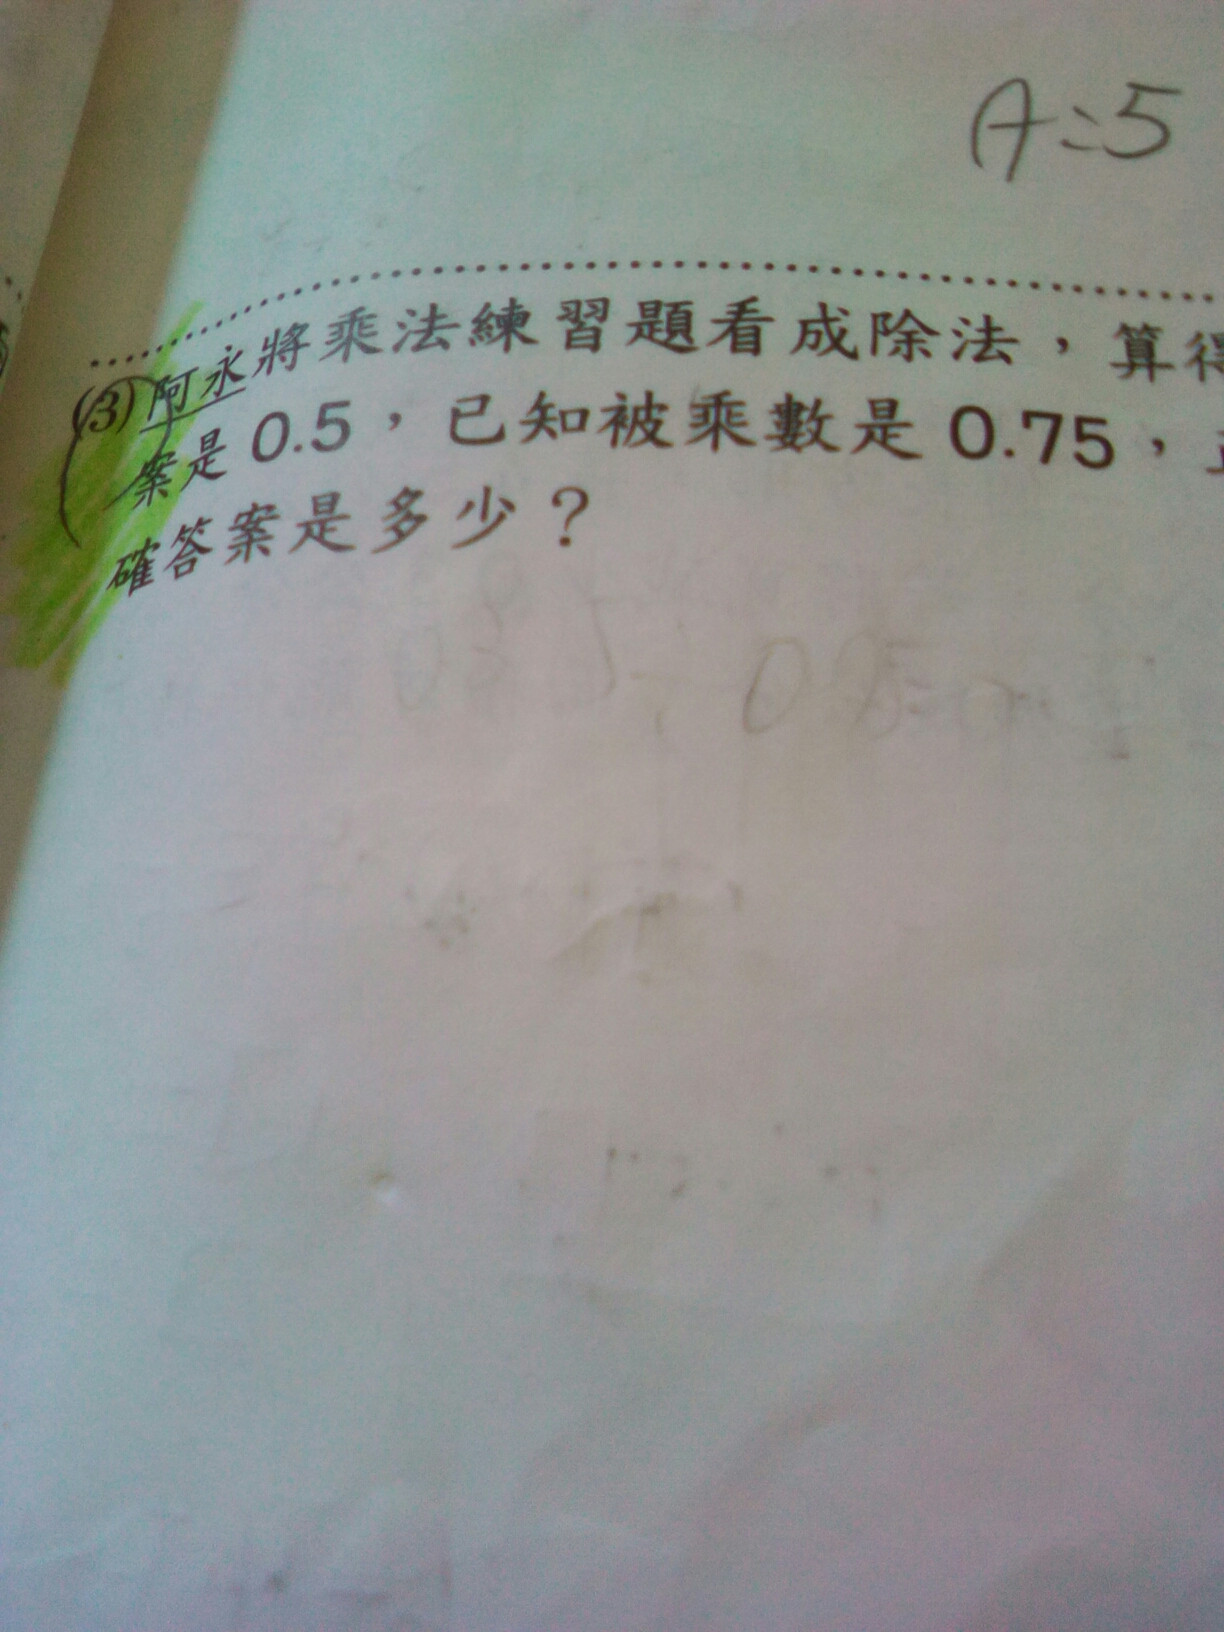 A=5
(3) 阿永將乘法練習題看成除法，算得
案是 0.5，已知被乘數是 0.75，
確答案是多少？